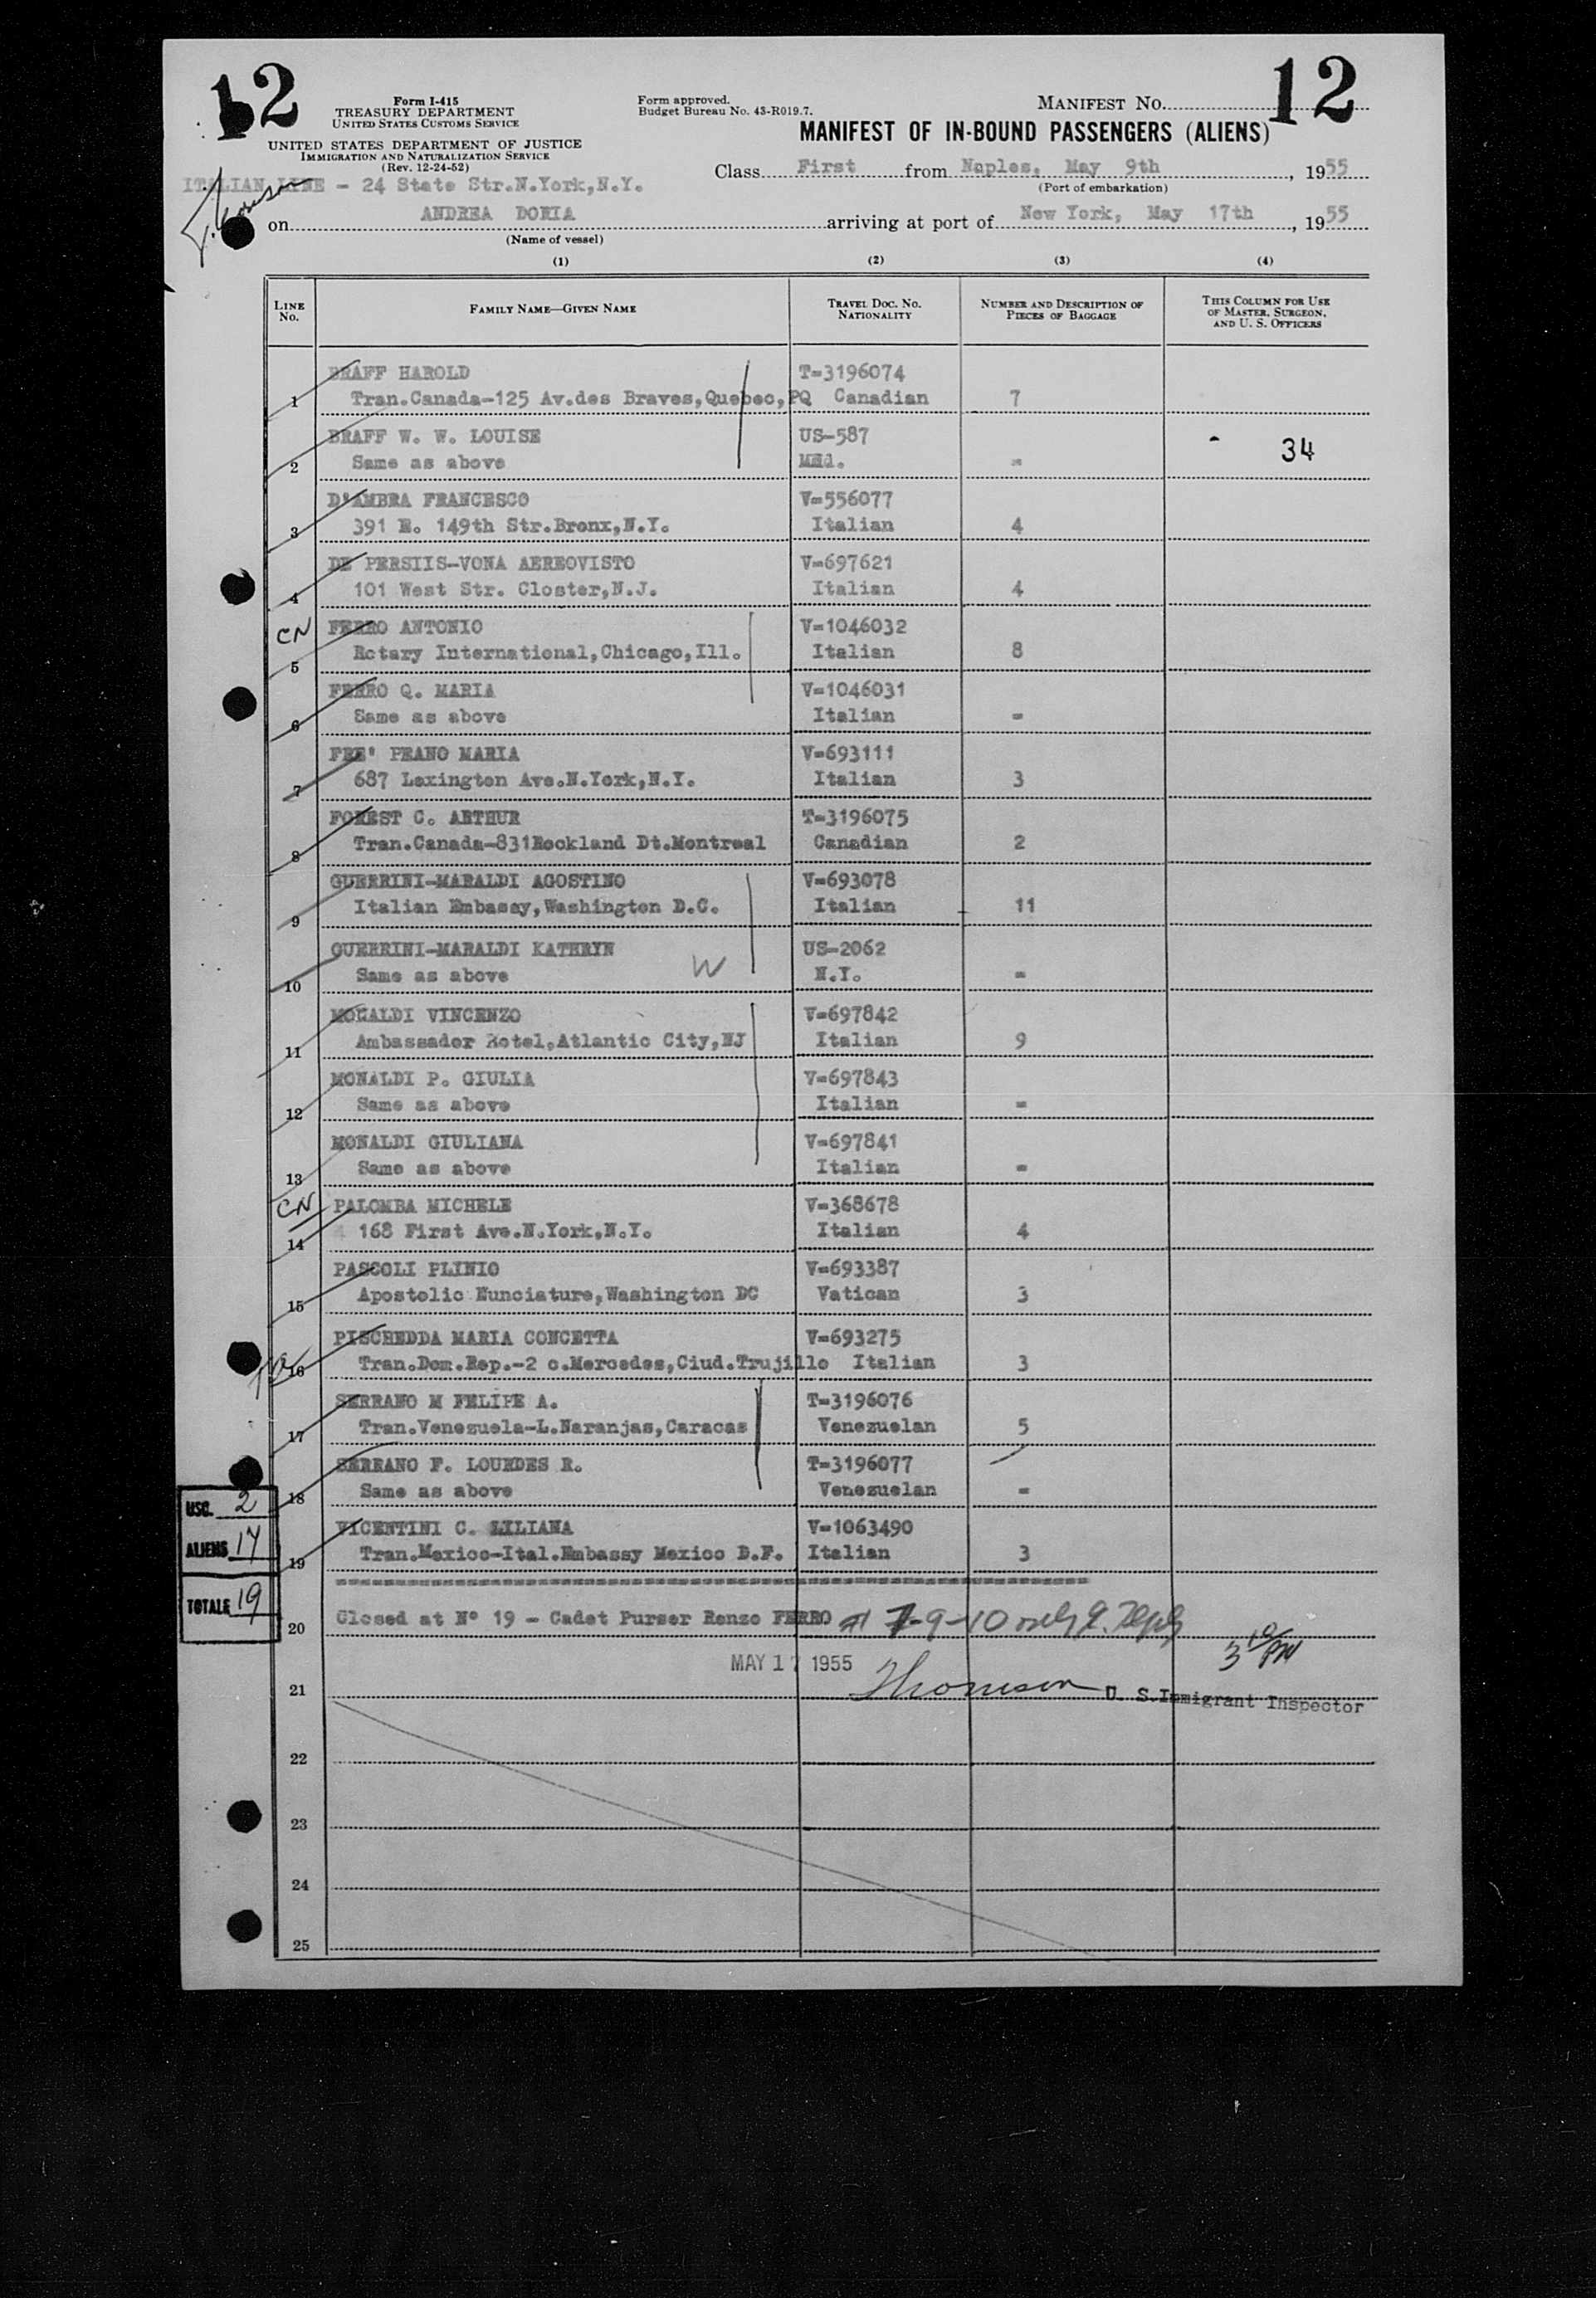 12
12
Form I-415
TREASURY DEPARTMENT
UNITED STATES CUSTOMS SERVICE
Form approved.
Budget Bureau No. 43-R019.7.
MANIFEST NO.
MANIFEST OF IN-BOUND PASSENGERS (ALIENS)
UNITED STATES DEPARTMENT OF JUSTICE
IMMIGRATION AND NATURALIZATION SERVICE
(Rev. 12-24-52)
Class First from Naples, May 9th, 1955
(Port of embarkation)
ITALIAN LINE - 24 State Str.N.York,N.Y.
on ANDREA DORIA arriving at port of New York, May 17th, 1955
(Name of vessel)
(1) (2) (3) (4)
LINE NO. FAMILY NAME—GIVEN NAME TRAVEL DOC. NO. NATIONALITY NUMBER AND DESCRIPTION OF PIECES OF BAGGAGE THIS COLUMN FOR USE OF MASTER, SURGEON, AND U. S. OFFICERS
BRAFF HAROLD T=3196074
1 Tran.Canada-125 Av.des Braves,Quebec,PQ Canadian 7
BRAFF W. W. LOUISE US-587 34
2 Same as above =
D'AMBRA FRANCESCO V=556077
3 391 E. 149th Str.Bronx,N.Y. Italian 4
DE PERSIIS-VONA AEREOVISTO V=697621
4 101 West Str. Closter,N.J. Italian 4
CN FERRO ANTONIO V=1046032
5 Rotary International,Chicago,Ill. Italian 8
FERRO Q. MARIA V=1046031
6 Same as above Italian =
FRE' PEANO MARIA V=693111
7 687 Lexington Ave.N.York,N.Y. Italian 3
FOREST C. ARTHUR T=3196075
8 Tran.Canada-831Rockland Dt.Montreal Canadian 2
GUERRINI-MARALDI AGOSTINO V=693078
9 Italian Embassy,Washington D.C. Italian 11
GUERRINI-MARALDI KATHRYN W US-2062
10 Same as above N.Y. =
MONALDI VINCENZO V=697842
11 Ambassador Hotel,Atlantic City,NJ Italian 9
MONALDI P. GIULIA V=697843
12 Same as above Italian =
MONALDI GIULIANA V=697841
13 Same as above Italian =
CN PALOMBA MICHELE V=368678
14 168 First Ave.N.York,N.Y. Italian 4
PASCOLI PLINIO V=693387
15 Apostolic Nunciature,Washington DC Vatican 3
PISCHEDDA MARIA CONCETTA V=693275
16 Tran.Dom.Rep.-2 c.Mercedes,Ciud.Trujillo Italian 3
SERRANO M FELIPE A. T=3196076
17 Tran.Venezuela-L.Naranjas,Caracas Venezuelan 5
SERRANO F. LOURDES R. T=3196077
18 Same as above Venezuelan =
VICENTINI C. LILIANA V=1063490
19 Tran.Mexico-Ital.Embassy Mexico D.F. Italian 3
USC. 2
ALIENS 17
TOTALE 19
20 Closed at N° 19 - Cadet Purser Renzo FERRO
MAY 17 1955 3 10 PM
21 Thomson U. S.Immigrant Inspector
22
23
24
25